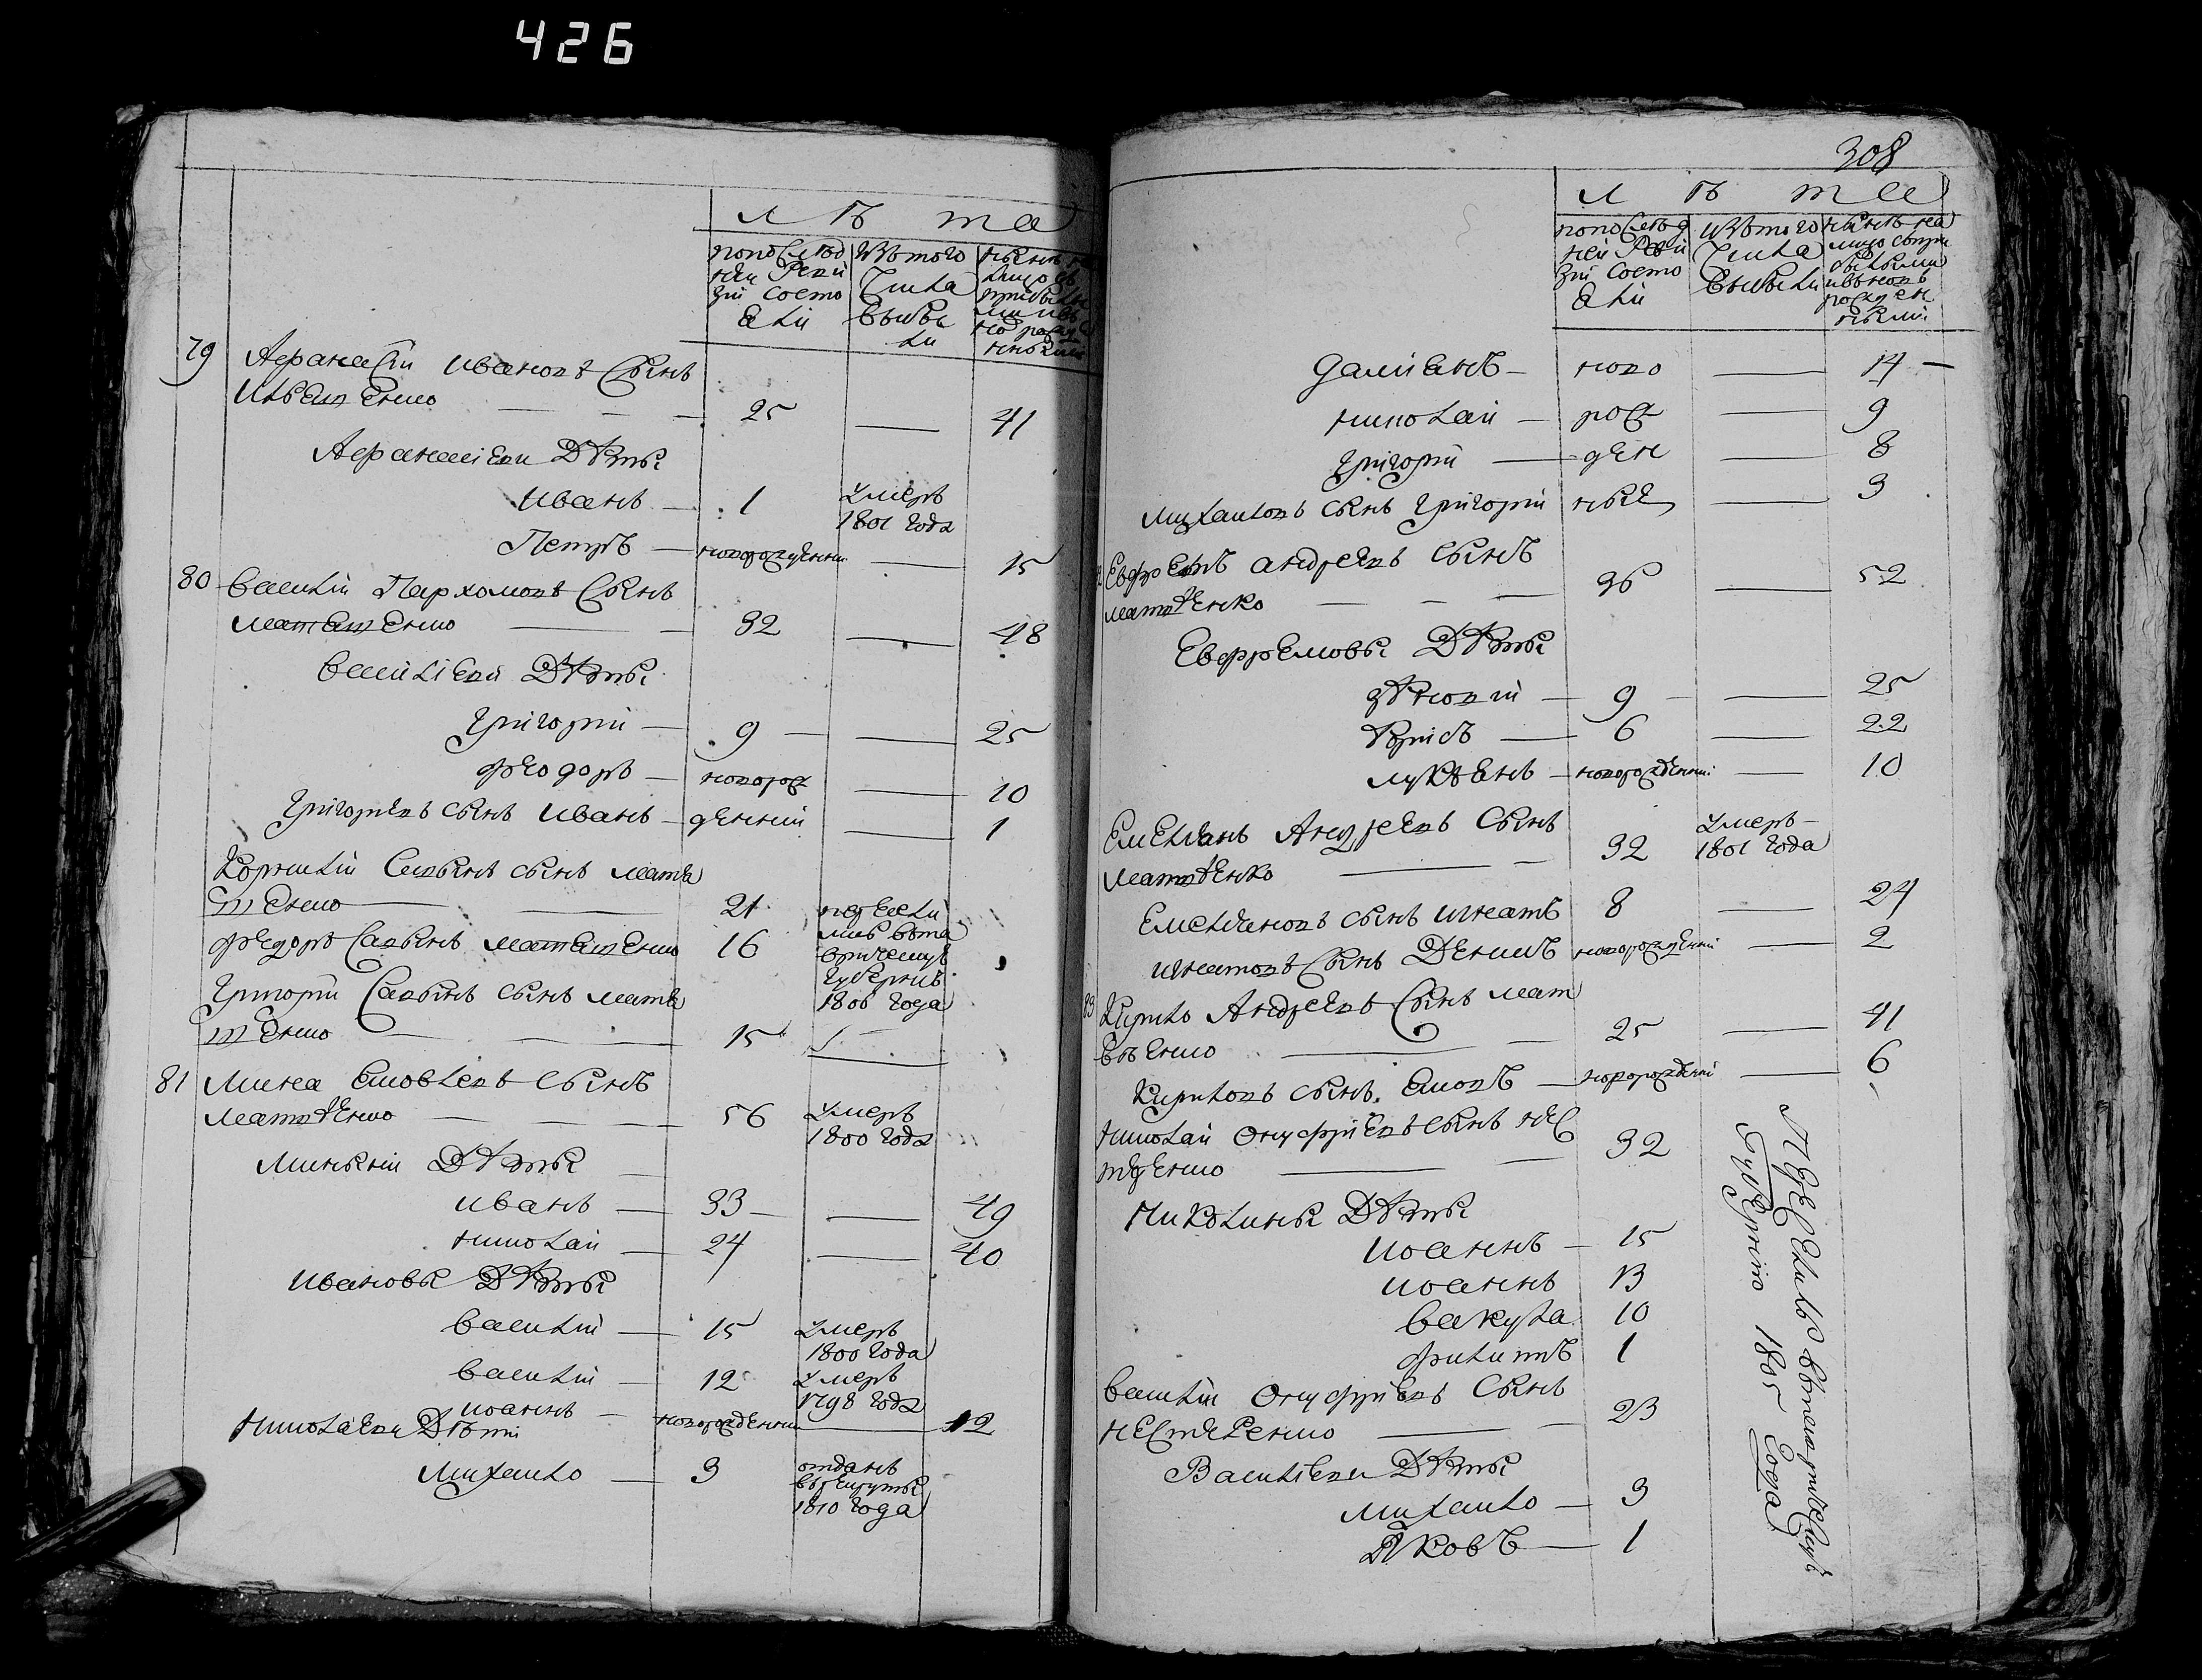 426
лѣта
по послѣд
ней Реви
зіи состо
яли
изъ того
числа
выбы
ли
нынѣ
79
Афанасій Ивановъ сынъ
25
41
Афанасіеви Дѣты
Иванъ 1 умеръ
1801 года
Петръ новорожденни 15
80 Василій Пархомовъ сынъ
Матвѣенко 32 48
Василіеви Дѣты
Григорій 9 25
Ѳеодоръ новорож 10
Григорієвъ сынъ Иванъ денний 1
Корнилій Савынъ сынъ Матвѣ
енко 21 пересели
лись въ та
врическую
губернію
1806 года
Федоръ Савынъ Матвѣенко 16
Григорій Савынъ сынъ Матвѣ
енко 15
81 Мина Яковлевъ сынъ
Матвѣенко 56 умеръ
1800 года
Миныни Дѣты
Иванъ 33 49
Николай 24 40
Ивановы Дѣты
Василій 15 умеръ
1800 года
Василій 12 умеръ
1798 года
Иоаннъ новорожденни 12
Николаеви Дѣти
Михайло 3 отданъ
въ рекруты
1810 года
308
лѣта
по послѣд
ней Реви
зіи состо
яли
изъ того
числа
выбыли
нынѣ на
лицо съ при
былыми
и вновь
рожден
ными
Даміанъ ново 14
Николай рож 9
Григорій ден 8
Михайловъ сынъ Григорій ные 3
Евфремъ Андреевъ сынъ
Матвѣенко 36 52
Евфремовы Дѣты
9 25
6 22
Лукіянъ новорожденни 10
Емельянъ Андреевъ сынъ
Матвѣенко 32 умеръ
1801 года
Емельяновъ сынъ Игнатъ 8 24
Игнатовъ сынъ Денисъ новорожденни 2
83 Кирило Андреевъ сынъ Мат
вѣенко 25 41
Кириловъ сынъ Яковъ новорожденни 6
Николай Онуфріевъ сынъ Нес
теренко 32
Николины Дѣты
Иоаннъ 15
Иоаннъ 13
Вакула 10
Филипъ 1
Василій Онуфріевъ сынъ
Нестеренко 23
Василіеви Дѣты
Михайло 3
Яковъ 1
переселились въ таврическую
губернію 1805 года